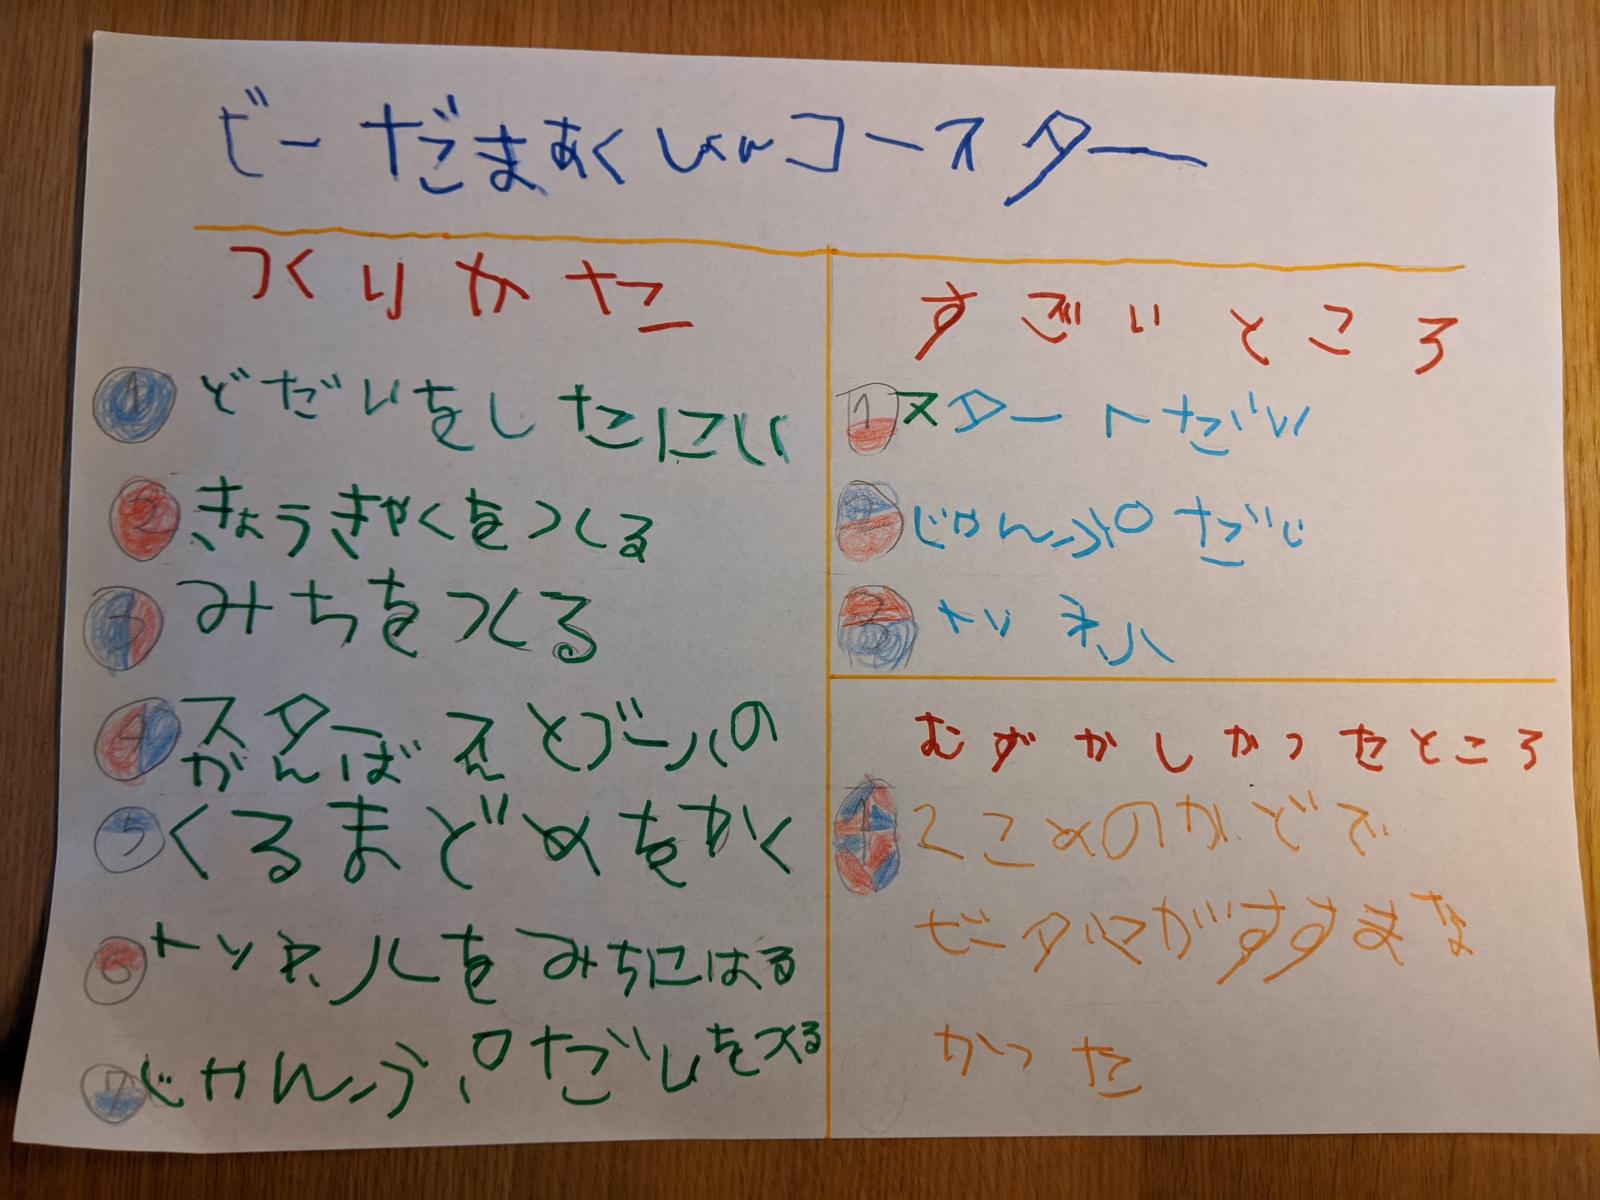 びーだまあくしょんコースター
つくりかた
1 どだいをしたにに
2 きょうきゃくをつくる
3 みちをつくる
4 スターとゴールの
がんばんえ
5 くるまどめをかく
6 トンネルをみちにはる
7 じゃんぷだいをつくる
すごいところ
1 スタートだい
2 じゃんぷだい
3 トンネル
むずかしかったところ
1 2こめのかどで
ビーダマがすすまな
かった